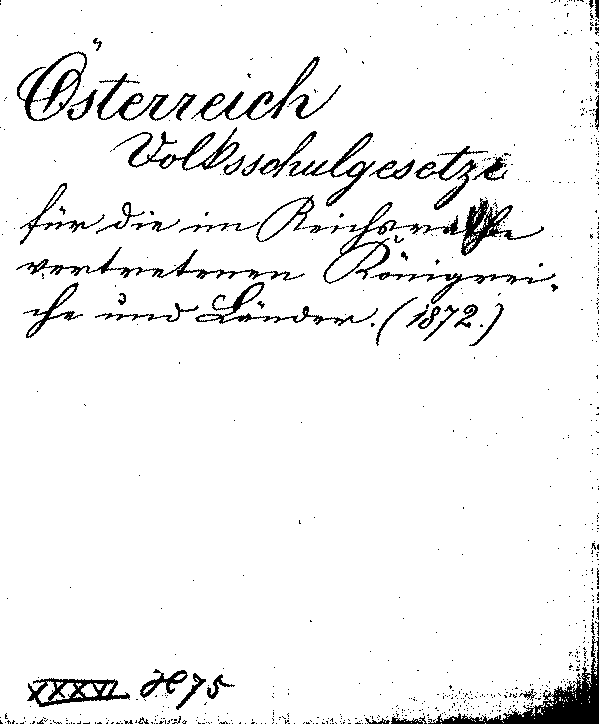 Österreich
Volksschulgesetze
für die im Reichsrathe
vertretenen Königrei-
che und Länder. (1872.)
XXXVI H 75